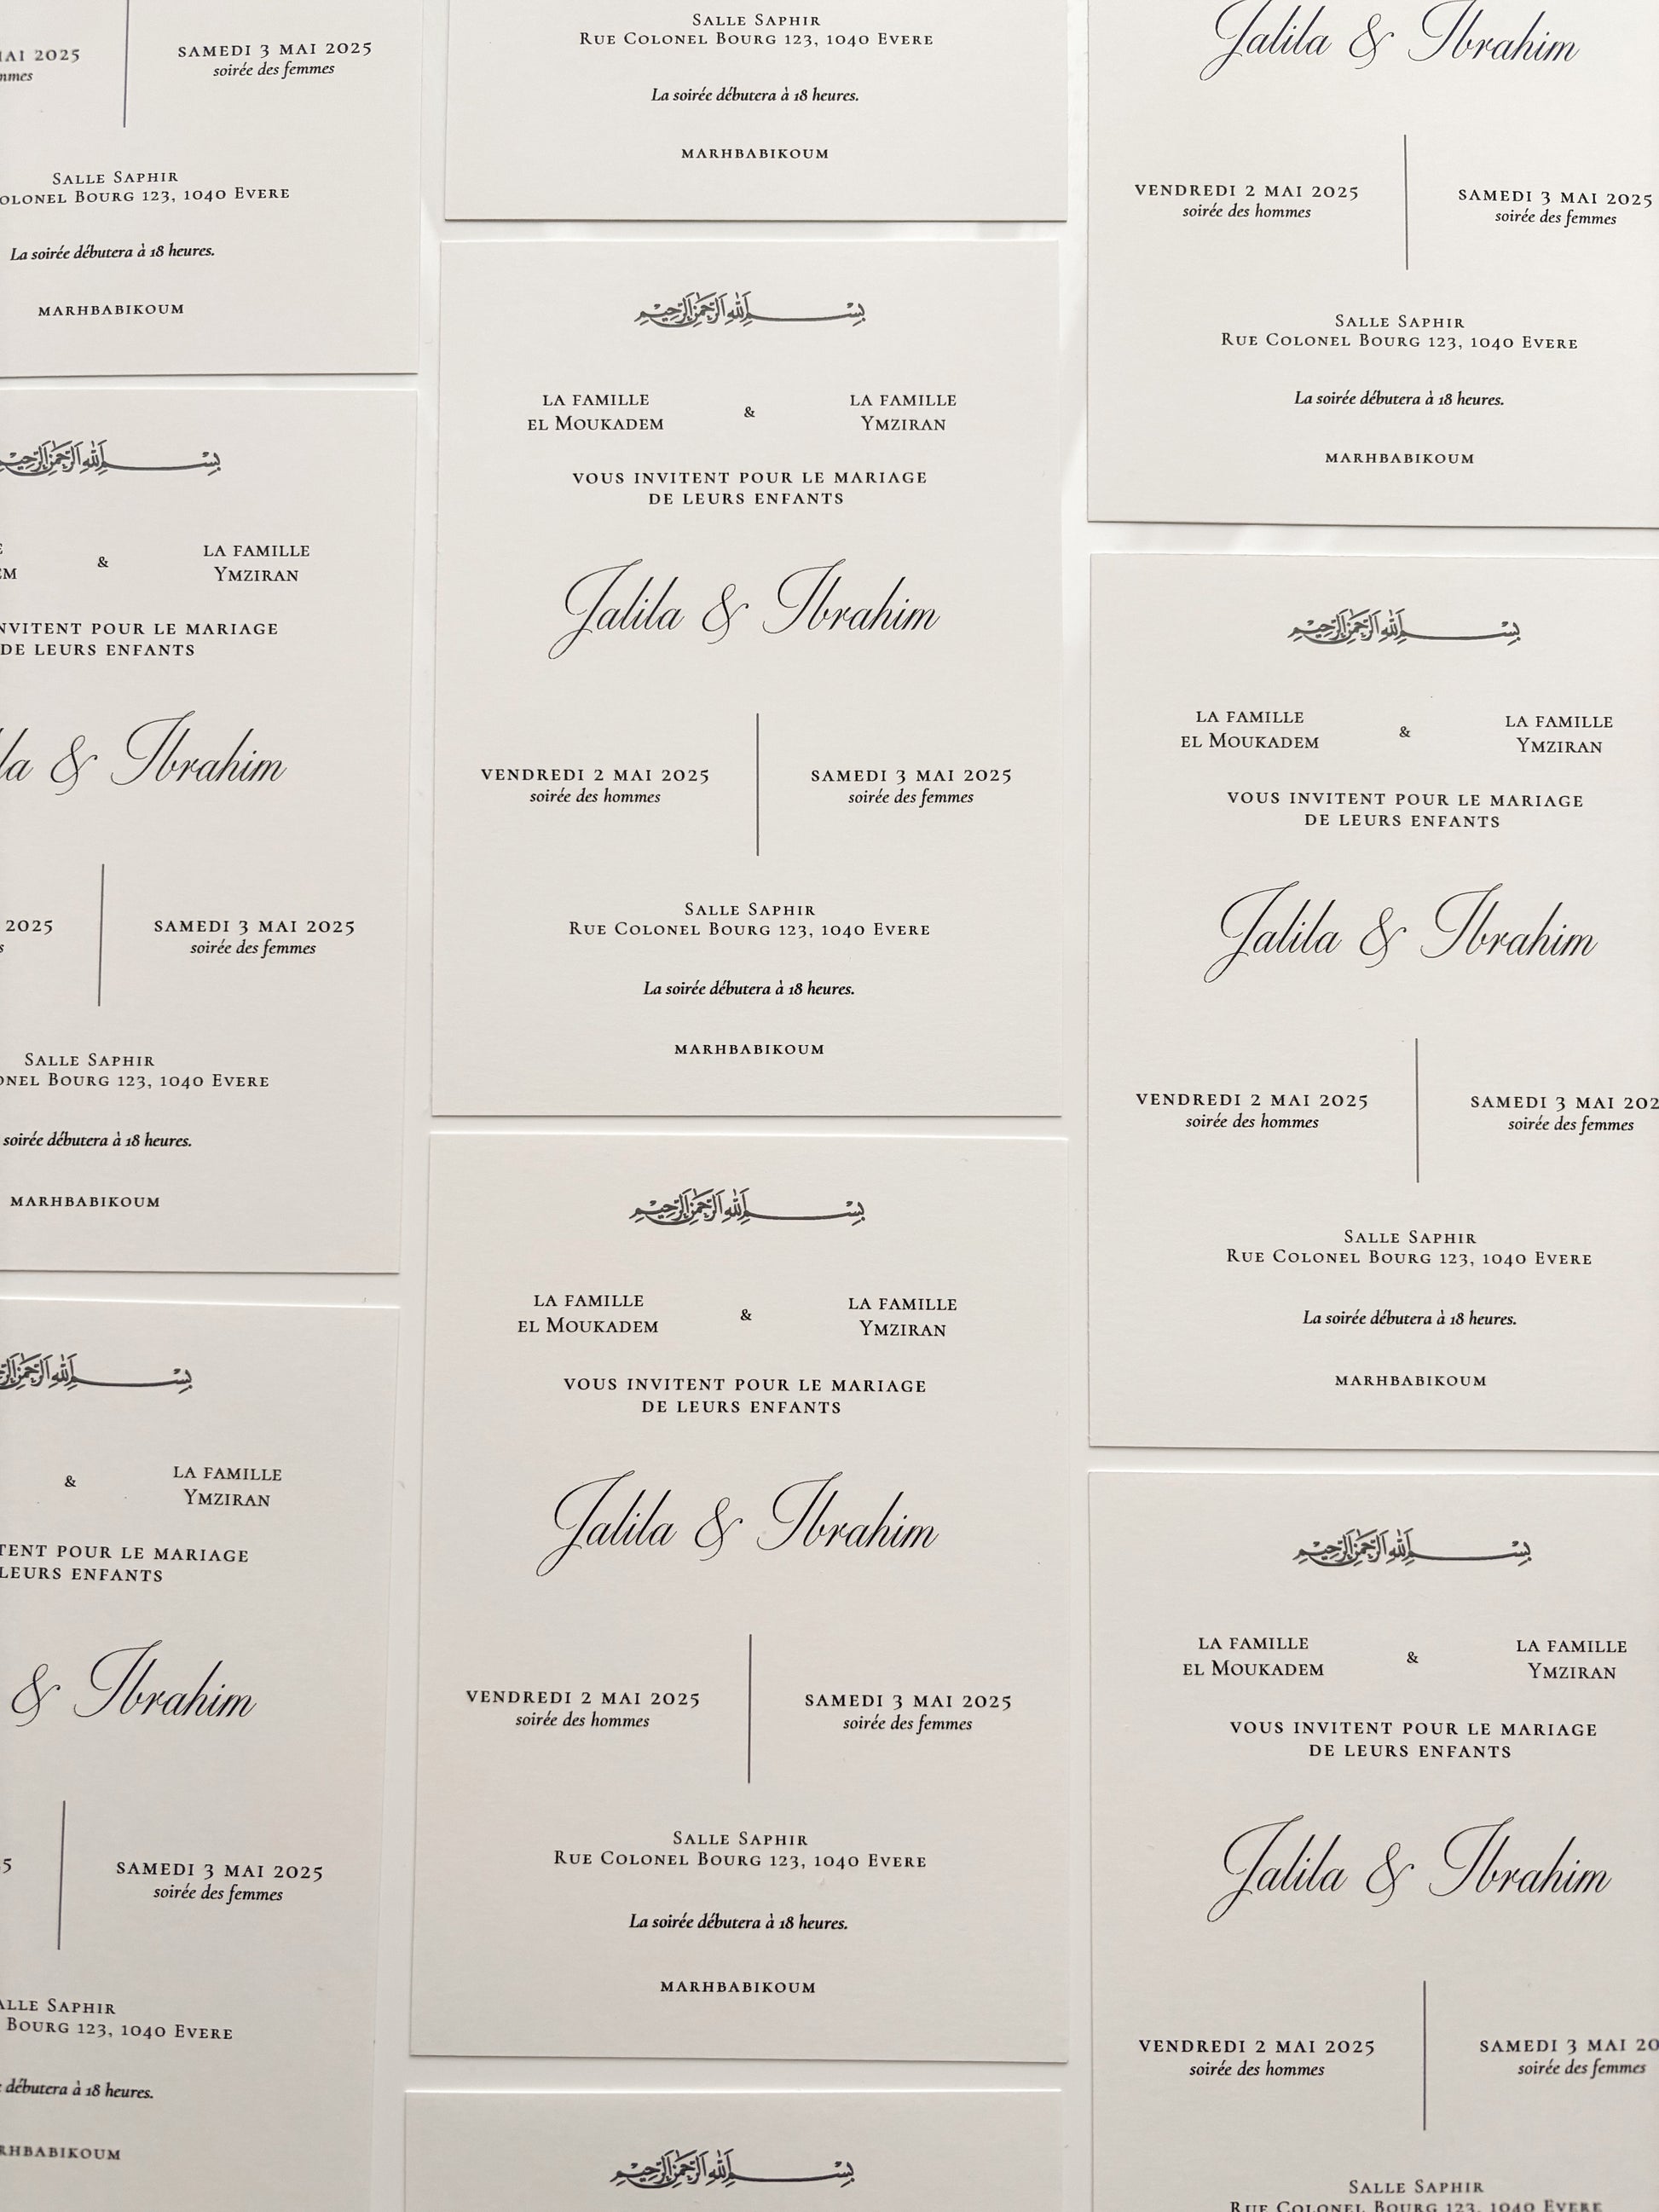 MAI 2025
SAMEDI 3 MAI 2025
soirée des femmes
SALLE SAPHIR
COLONEL BOURG 123, 1040 EVERE
La soirée débutera à 18 heures.
MARHBABIKOUM
بسم الله الرحمن الرحيم
&
LA FAMILLE
YMZIRAN
INVITENT POUR LE MARIAGE
DE LEURS ENFANTS
& Ibrahim
2025
SAMEDI 3 MAI 2025
soirée des femmes
SALLE SAPHIR
BOURG 123, 1040 EVERE
soirée débutera à 18 heures.
MARHBABIKOUM
بسم الله الرحمن الرحيم
&
LA FAMILLE
YMZIRAN
POUR LE MARIAGE
LEURS ENFANTS
& Ibrahim
SAMEDI 3 MAI 2025
soirée des femmes
SALLE SAPHIR
BOURG 123, 1040 EVERE
débutera à 18 heures.
MARHBABIKOUM
SALLE SAPHIR
RUE COLONEL BOURG 123, 1040 EVERE
La soirée débutera à 18 heures.
MARHBABIKOUM
بسم الله الرحمن الرحيم
LA FAMILLE EL MOUKADEM & LA FAMILLE YMZIRAN
VOUS INVITENT POUR LE MARIAGE
DE LEURS ENFANTS
Jalila & Ibrahim
VENDREDI 2 MAI 2025
soirée des hommes
SAMEDI 3 MAI 2025
soirée des femmes
SALLE SAPHIR
RUE COLONEL BOURG 123, 1040 EVERE
La soirée débutera à 18 heures.
MARHBABIKOUM
بسم الله الرحمن الرحيم
LA FAMILLE EL MOUKADEM & LA FAMILLE YMZIRAN
VOUS INVITENT POUR LE MARIAGE
DE LEURS ENFANTS
Jalila & Ibrahim
VENDREDI 2 MAI 2025
soirée des hommes
SAMEDI 3 MAI 2025
soirée des femmes
SALLE SAPHIR
RUE COLONEL BOURG 123, 1040 EVERE
La soirée débutera à 18 heures.
MARHBABIKOUM
بسم الله الرحمن الرحيم
Jalila & Ibrahim
VENDREDI 2 MAI 2025
soirée des hommes
SAMEDI 3 MAI 2025
soirée des femmes
SALLE SAPHIR
RUE COLONEL BOURG 123, 1040 EVERE
La soirée débutera à 18 heures.
MARHBABIKOUM
بسم الله الرحمن الرحيم
LA FAMILLE EL MOUKADEM & LA FAMILLE YMZIRAN
VOUS INVITENT POUR LE MARIAGE
DE LEURS ENFANTS
Jalila & Ibrahim
VENDREDI 2 MAI 2025
soirée des hommes
SAMEDI 3 MAI 202
soirée des femmes
SALLE SAPHIR
RUE COLONEL BOURG 123, 1040 EVERE
La soirée débutera à 18 heures.
MARHBABIKOUM
بسم الله الرحمن الرحيم
LA FAMILLE EL MOUKADEM & LA FAMILLE YMZIRAN
VOUS INVITENT POUR LE MARIAGE
DE LEURS ENFANTS
Jalila & Ibrahim
VENDREDI 2 MAI 2025
soirée des hommes
SAMEDI 3 MAI 20
soirée des femmes
SALLE SAPHIR
RUE COLONEL BOURG 123, 1040 EVERE